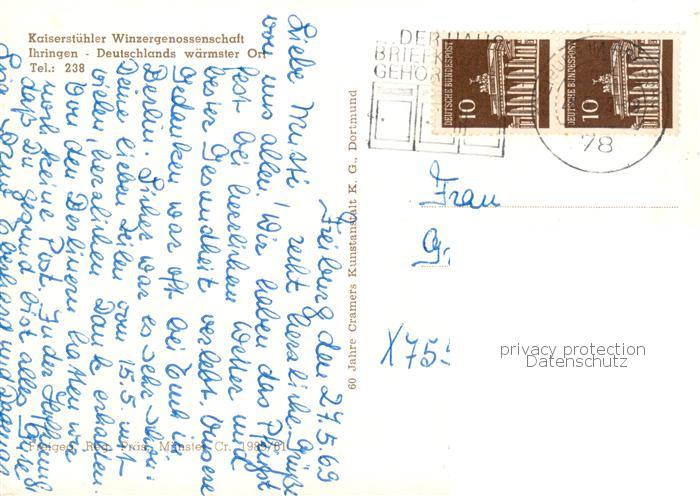 Kaiserstühler Winzergenossenschaft
Ihringen - Deutschlands wärmster Ort
Tel.: 238
Freiburg den 27.5.69
Liebe Mutti! recht herzliche Grüße
von uns allen! Wir haben das Pfingst
fest bei herrlichem Wetter und
bester Gesundheit verlebt. Unsere
Gedanken war oft bei Euch in
Berlin. Sicher war es sehr schön.
Deine lieben Zeilen vom 15.5. mit
vielen, herzlichen Dank erhalten.
Von den Berlinern hatten wir
noch keine Post. In der Hoffnung
daß Du gesund bist alles Gute
60 Jahre Cramers Kunstanstalt K. G., Dortmund
Freigeg. Reg. Präs. Münster Cr. 1980/61
DER HAUS
BRIEFK
GEHÖR
DEUTSCHE BUNDESPOST
10
10
78
Frau
Gr
X755
privacy protection
Datenschutz